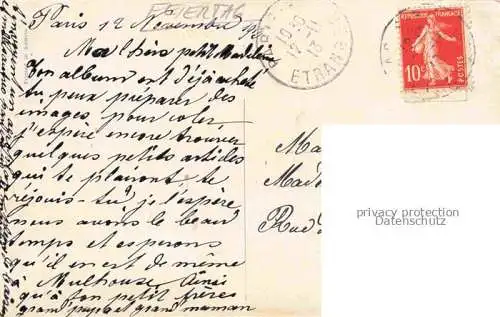 Paris 12 Novembre 1913
FEVERTAG
Ma chère petit Madeleine
Ton album ont déjà acheté
tu peux préparer des
images pour coler
j'espère encore trouver
quelques petits articles
qui te plairont, te
réjouis-tu? je l'espère
nous avons le beau
temps et esperons
qu'il en est de même
à Mulhouse. Ainsi
qu'à ton petit frères
grand'papa et grand maman
ETRANGER
REPUBLIQUE FRANÇAISE
10c
POSTES
Ma
Made
Rue d
privacy protection
Datenschutz